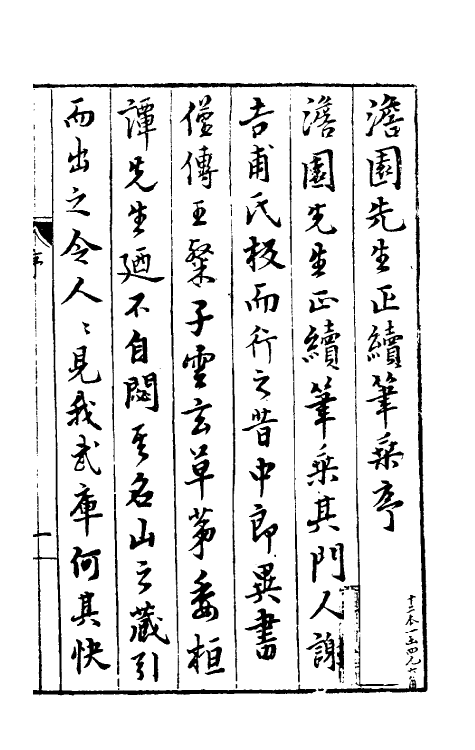 澹園先生正續筆乗序
澹園先生正續筆乗其門人謝
吉甫氏校而行之昔中郎異書
僅傳王粲子雲玄草第委桓
譚先生廼不自閟其名山之藏引
而出之令人〻見我武庫何其快
序
一